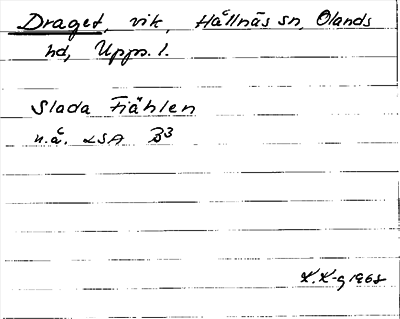 Draget, vik, Hållnäs sn, Olands
hd, Upps. l.
Slada Fiählen
n.å. LSA B3
K. K-g 1968